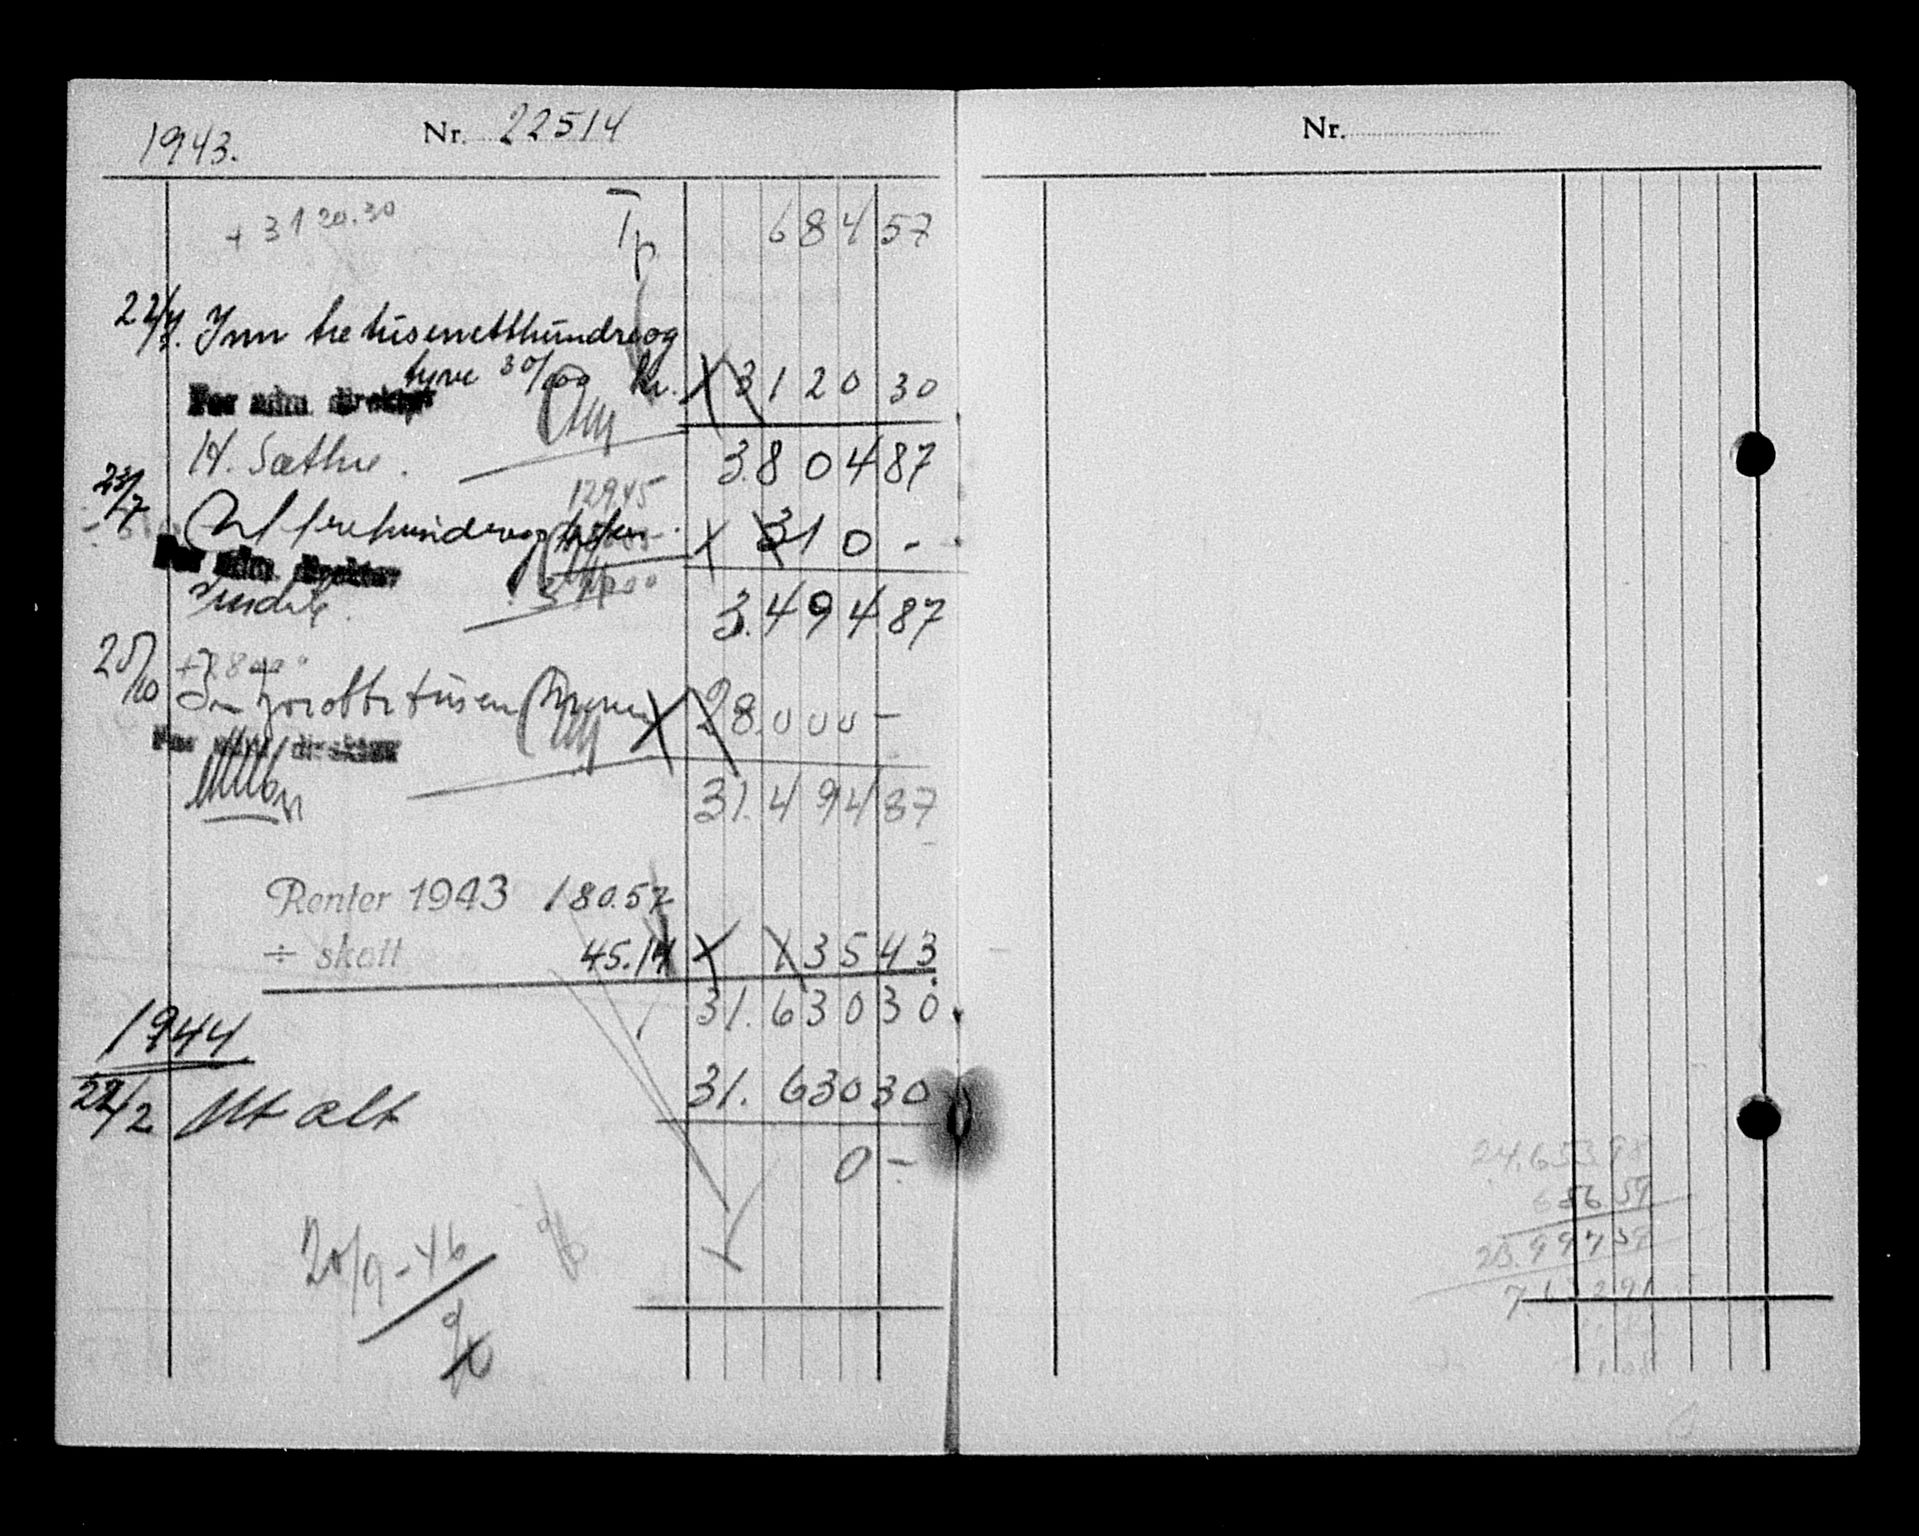 1943. Nr. 22514
+ 3120.30 Tp 684 57
22/4. Inn tre tusenetthundreog
tyve 30/00 kr. 3120 30
For adm. direktør
H. Sæthre. 3.804 87
12945
23/7 Ut trehundreogti kr. 310 -
For adm. direktør
3.494 87
25/10 +28000
Inn tjueåtte tusen kroner 28.000 -
For adm. direktør
31.494 87
Renter 1943 180.57
÷ skatt 45.14 135 43
31.630 30
1944
22/2 Ut alt 31.630 30
0 -
20/9-46
Nr.
24.653.98
25.997 59